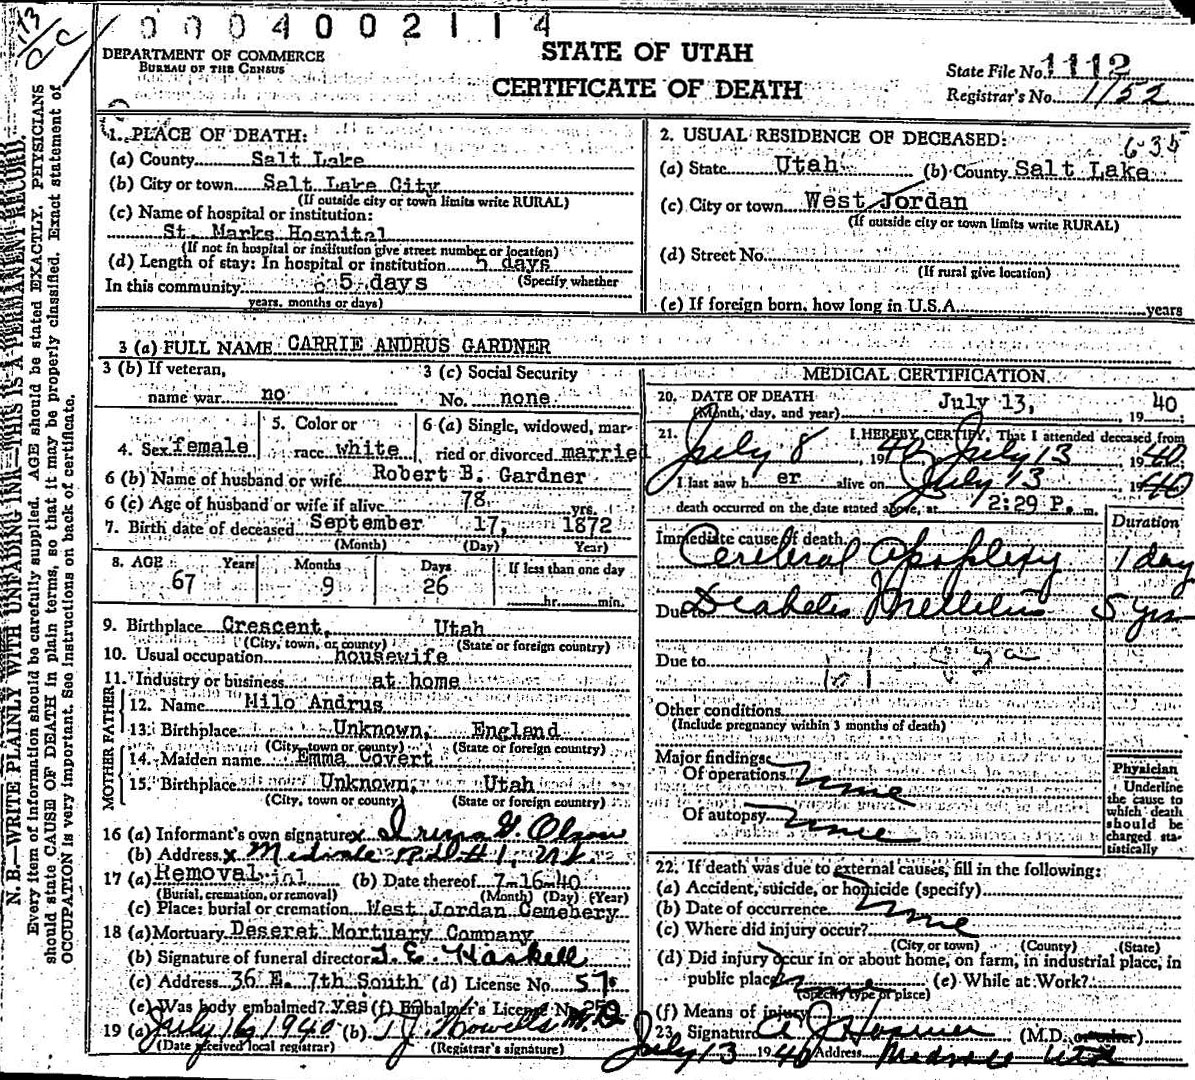 0004002114
113
CC
DEPARTMENT OF COMMERCE
BUREAU OF THE CENSUS
STATE OF UTAH
CERTIFICATE OF DEATH
State File No. 1112
Registrar's No. 1152
N. B.—WRITE PLAINLY WITH UNFADING INK—THIS IS A PERMANENT RECORD.
Every item of information should be carefully supplied. AGE should be stated EXACTLY. PHYSICIANS
should state CAUSE OF DEATH in plain terms, so that it may be properly classified. Exact statement of
OCCUPATION is very important. See instructions on back of certificate.
1. PLACE OF DEATH:
(a) County Salt Lake
(b) City or town Salt Lake City
(If outside city or town limits write RURAL)
(c) Name of hospital or institution:
St. Marks Hospital
(If not in hospital or institution give street number or location)
(d) Length of stay: In hospital or institution 5 days
In this community 5 days (Specify whether
years, months or days)
2. USUAL RESIDENCE OF DECEASED:
635
(a) State Utah (b) County Salt Lake
(c) City or town West Jordan
(If outside city or town limits write RURAL)
(d) Street No.
(If rural give location)
(e) If foreign born, how long in U.S.A. years
3 (a) FULL NAME CARRIE ANDRUS GARDNER
3 (b) If veteran,
name war no
3 (c) Social Security
No. none
4. Sex female
5. Color or
race white
6 (a) Single, widowed, mar-
ried or divorced married
6 (b) Name of husband or wife Robert B. Gardner
6 (c) Age of husband or wife if alive 78 yrs.
7. Birth date of deceased September 17, 1872
(Month) (Day) Year)
8. AGE Years Months Days If less than one day
67 9 26 hr. min.
9. Birthplace Crescent, Utah
(City, town, or county) (State or foreign country)
10. Usual occupation housewife
11. Industry or business at home
FATHER
12. Name Milo Andrus
13. Birthplace Unknown, England
(City, town or county) (State or foreign country)
MOTHER
14. Maiden name Emma Covert
15. Birthplace Unknown, Utah
(City, town or county) (State or foreign country)
16 (a) Informant's own signature x Irena G Olson
(b) Address x Medvale Rd # 1, Ut
17 (a) Removal (b) Date thereof 7-16-40
(Burial, cremation, or removal) (Month) (Day) (Year)
(c) Place: burial or cremation West Jordan Cemetery
18 (a) Mortuary Deseret Mortuary Company
(b) Signature of funeral director T. E. Haskell
(c) Address 36 E. 7th South (d) License No. 57
(e) Was body embalmed? yes (f) Embalmer's License No.
19 (a) July 16, 1940 (b) T J Howells M.D.
(Date received local registrar) (Registrar's signature)
MEDICAL CERTIFICATION
20. DATE OF DEATH
(Month, day, and year) July 13, 1940
21. I HEREBY CERTIFY, That I attended deceased from
July 8, 1940, July 13 1940
I last saw her alive on July 13 1940
death occurred on the date stated above, at 2:29 P. m.
Duration
Immediate cause of death
Cerebral Apoplexy 1 day
Due to Diabetes Mellitus 5 yrs
Due to
Other conditions
(Include pregnancy within 3 months of death)
Major findings:
Of operations None
Of autopsy None
Physician
Underline
the cause to
which death
should be
charged sta-
tistically
22. If death was due to external causes, fill in the following:
(a) Accident, suicide, or homicide (specify)
(b) Date of occurrence None
(c) Where did injury occur?
(City or town) (County) (State)
(d) Did injury occur in or about home, on farm, in industrial place, in
public place None (e) While at Work?
(Specify type of place)
(f) Means of injury
23. Signature A J Hosmer (M.D. or other)
July 13 1940 Address Medvale Utah